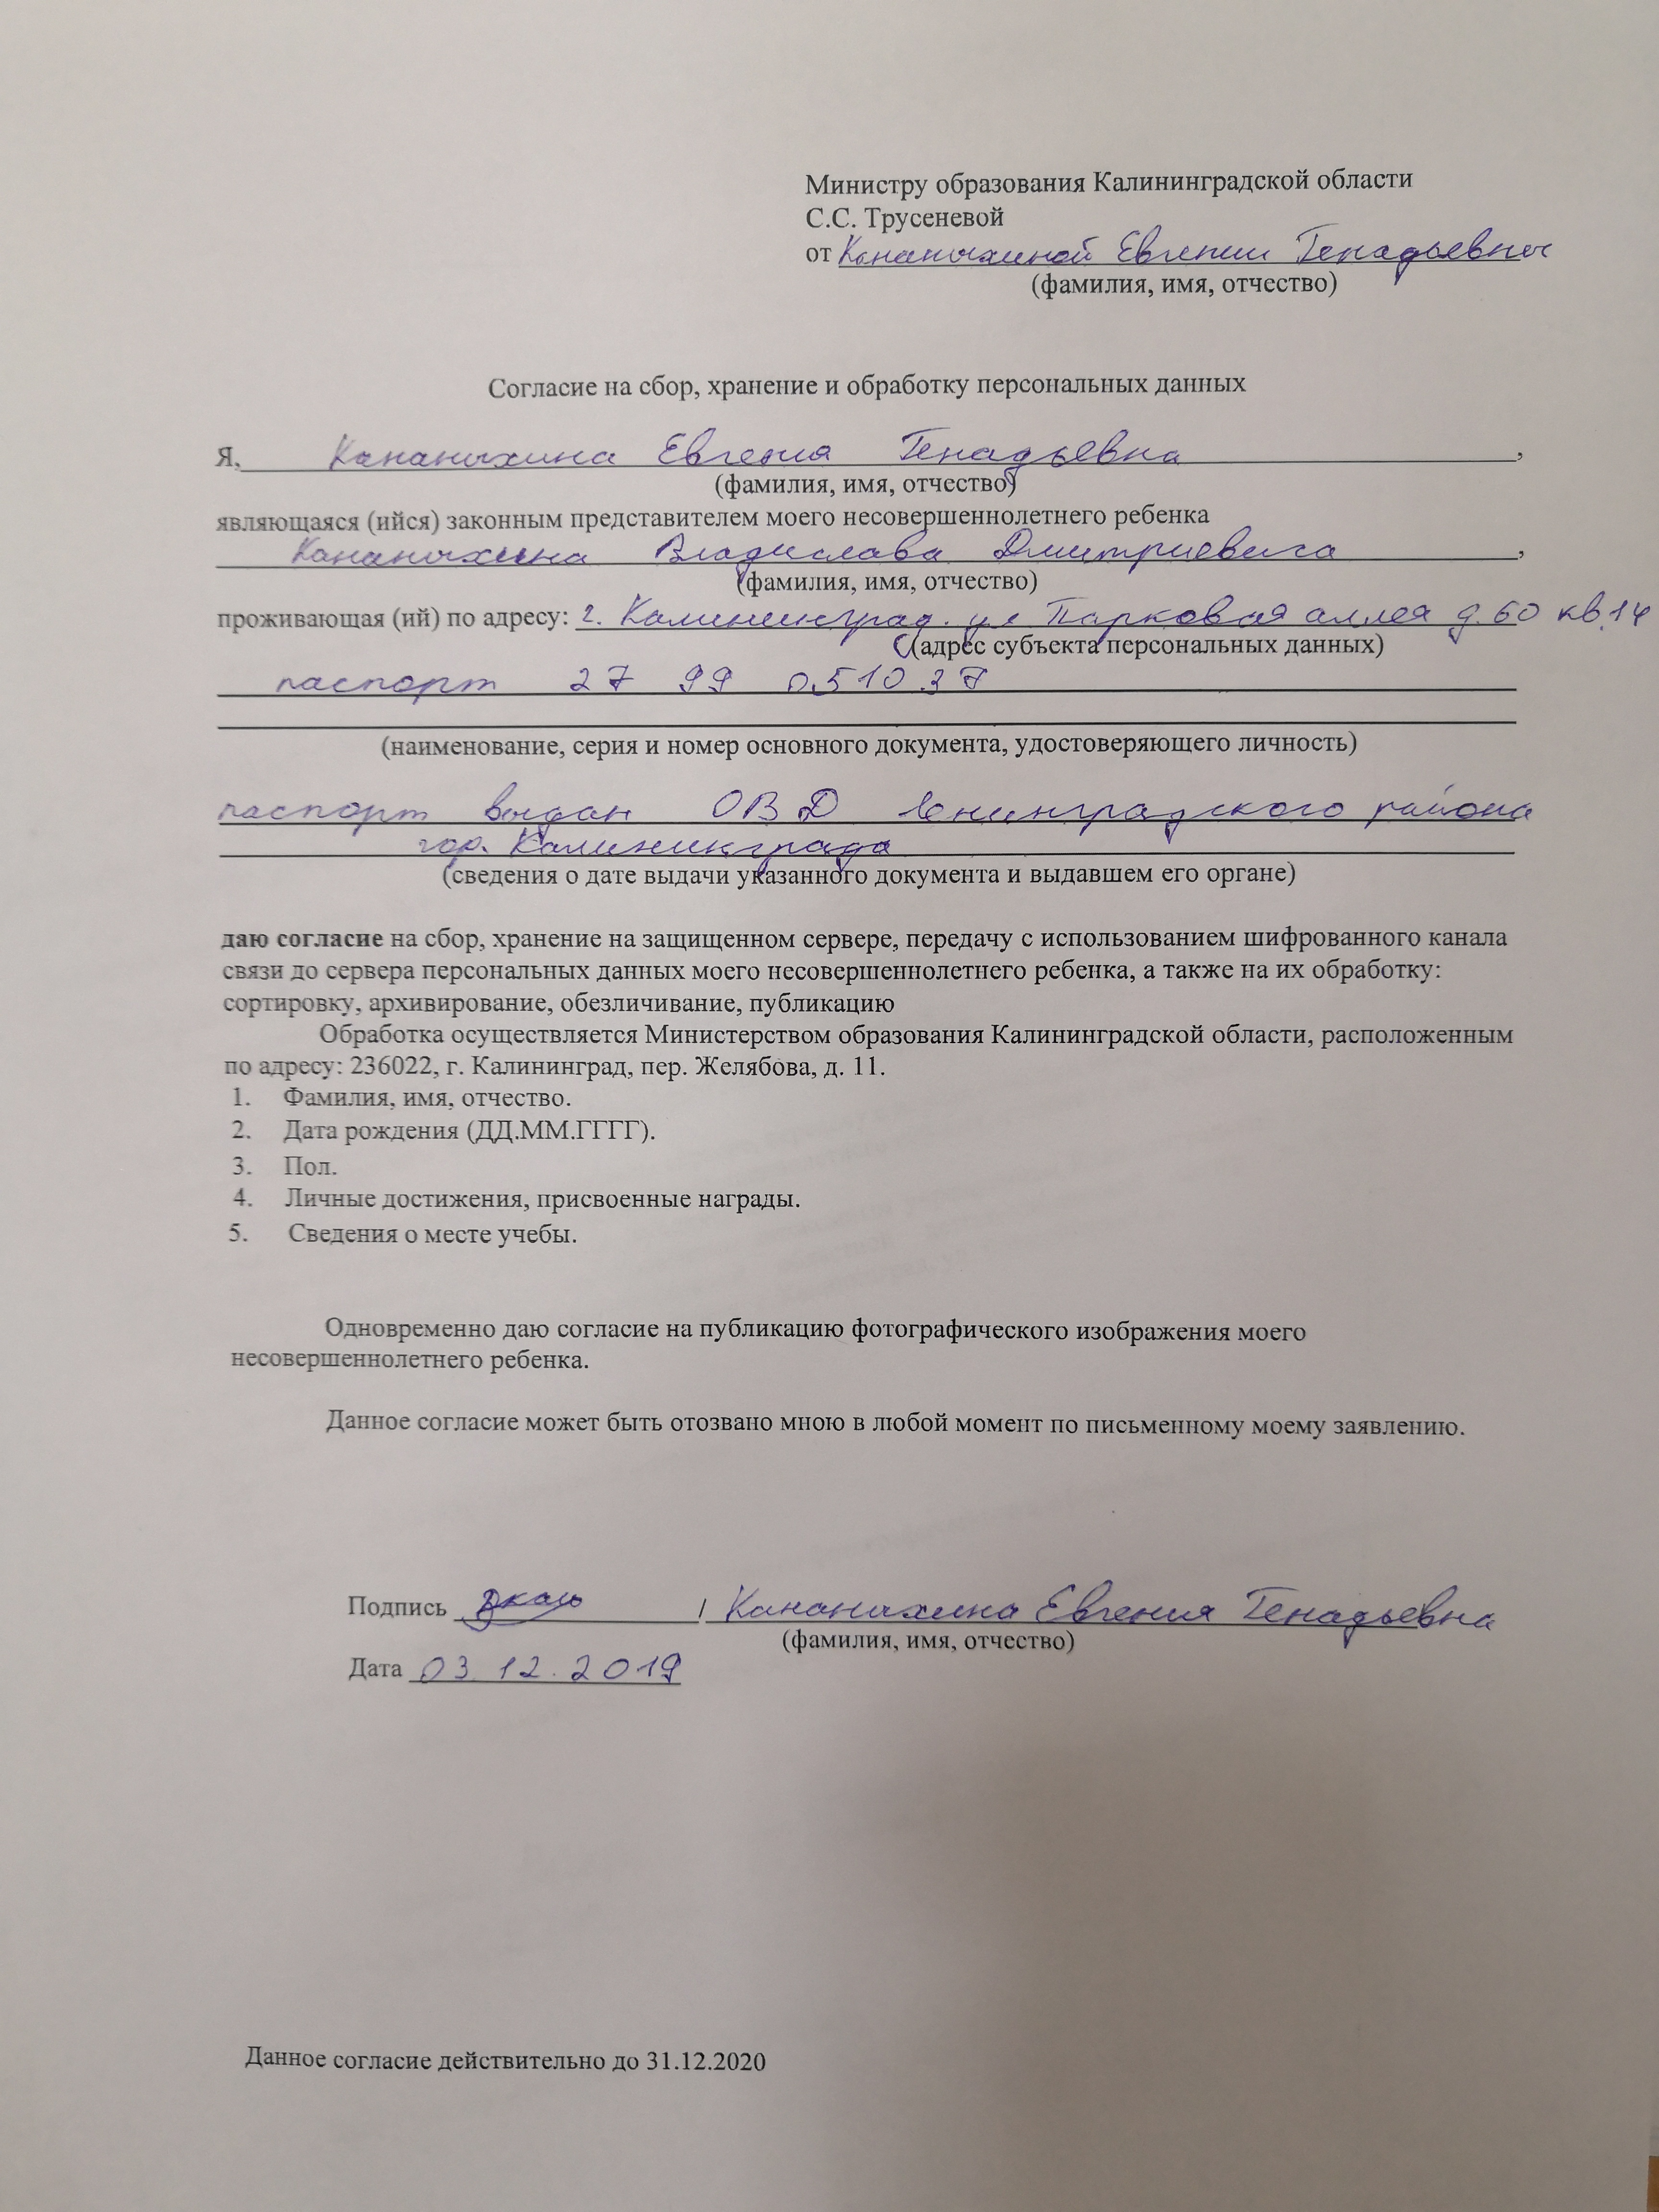 Министру образования Калининградской области
С.С. Трусеневой
от Кананыхиной Евгении Генадьевны
(фамилия, имя, отчество)
Согласие на сбор, хранение и обработку персональных данных
Я, Кананыхина Евгения Генадьевна,
(фамилия, имя, отчество)
являющаяся (ийся) законным представителем моего несовершеннолетнего ребенка
Кананыхина Владислава Дмитриевича,
(фамилия, имя, отчество)
проживающая (ий) по адресу: г. Калининград. ул Парковая аллея д. 60 кв.14
(адрес субъекта персональных данных)
паспорт 27 99 051037
(наименование, серия и номер основного документа, удостоверяющего личность)
паспорт выдан ОВД Ленинградского района
гор. Калининграда
(сведения о дате выдачи указанного документа и выдавшем его органе)
даю согласие на сбор, хранение на защищенном сервере, передачу с использованием шифрованного канала
связи до сервера персональных данных моего несовершеннолетнего ребенка, а также на их обработку:
сортировку, архивирование, обезличивание, публикацию
Обработка осуществляется Министерством образования Калининградской области, расположенным
по адресу: 236022, г. Калининград, пер. Желябова, д. 11.
1. Фамилия, имя, отчество.
2. Дата рождения (ДД.ММ.ГГГГ).
3. Пол.
4. Личные достижения, присвоенные награды.
5. Сведения о месте учебы.
Одновременно даю согласие на публикацию фотографического изображения моего
несовершеннолетнего ребенка.
Данное согласие может быть отозвано мною в любой момент по письменному моему заявлению.
Подпись / Кананыхина Евгения Генадьевна
(фамилия, имя, отчество)
Дата 03.12.2019
Данное согласие действительно до 31.12.2020